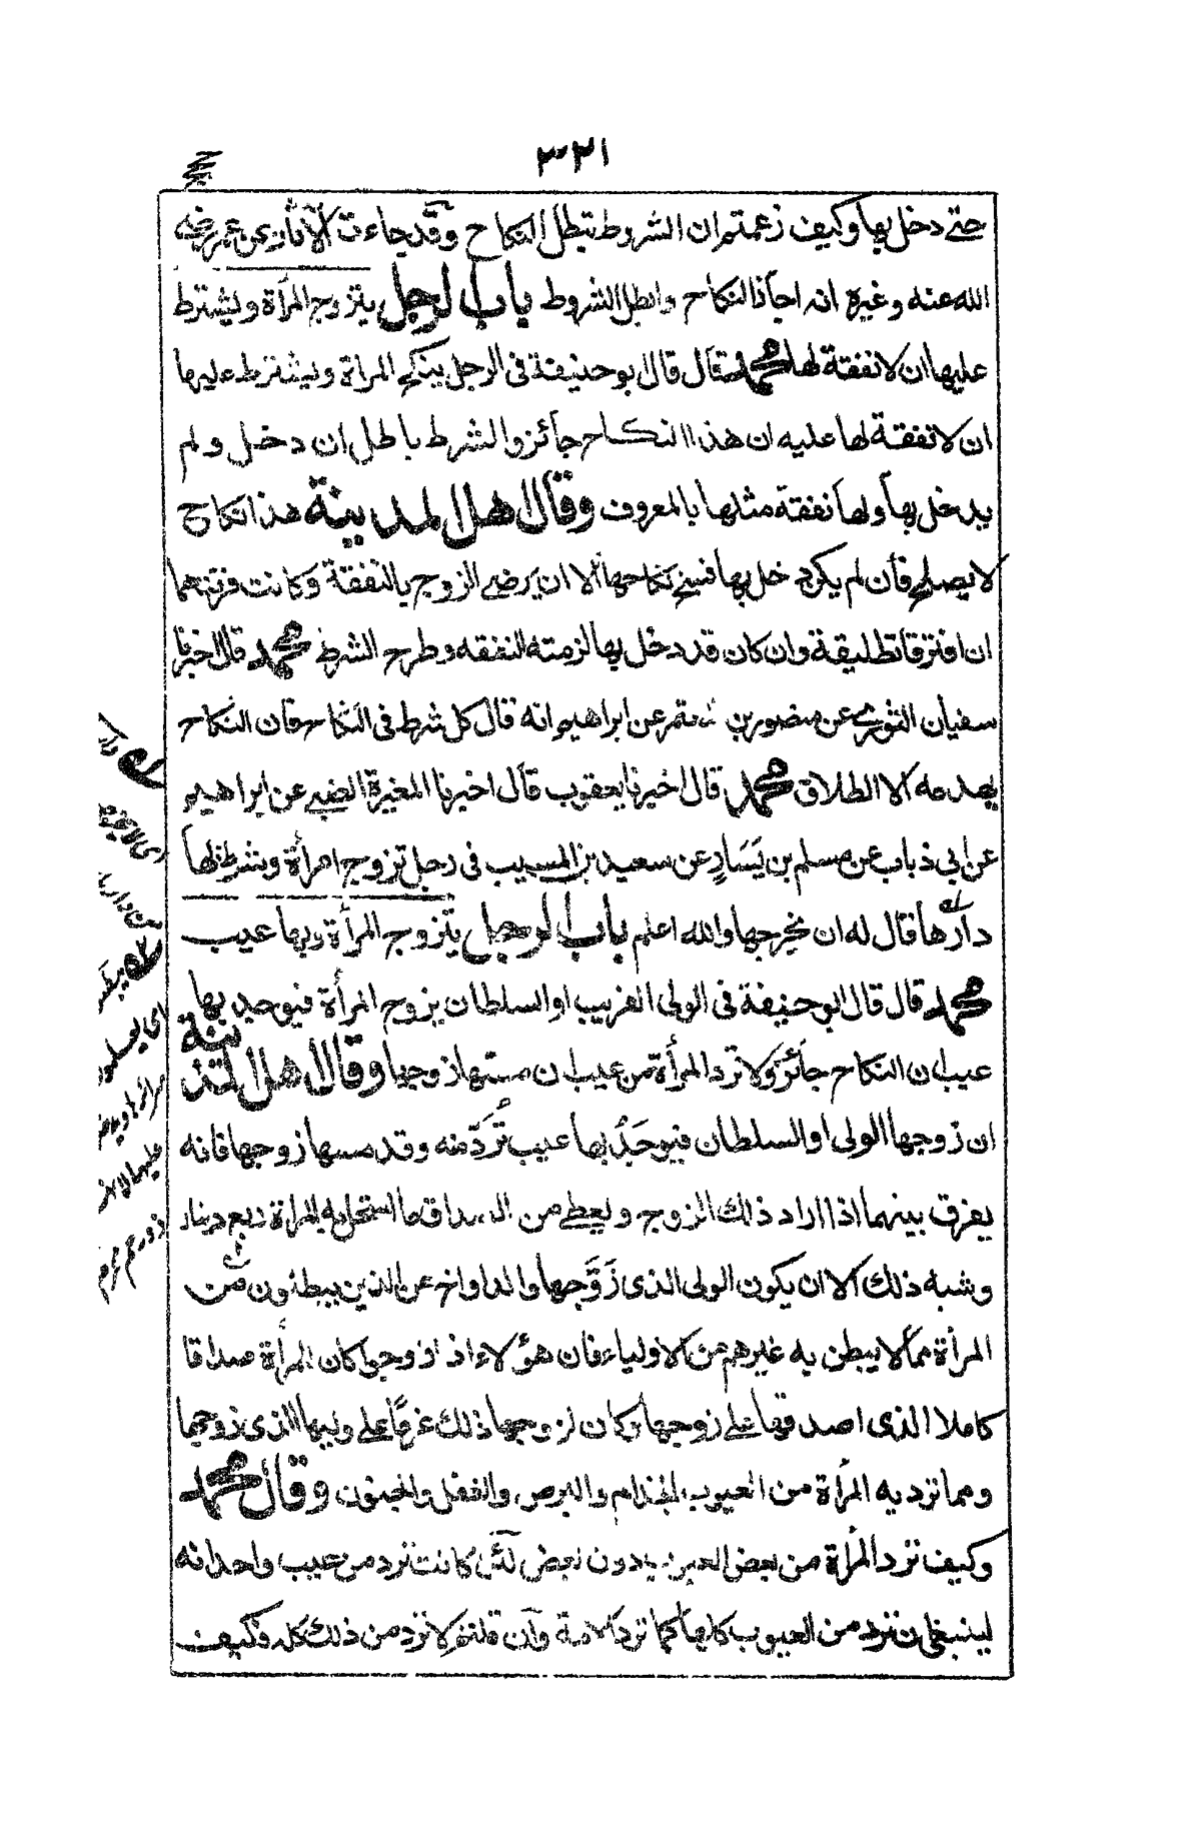 ٣٢١
حتى دخل بها وكيف زعمتم ان الشروط تبطل النكاح وقد جاءت الآثار عن عمر رضي
الله عنه وغيره انه اجاز النكاح وابطل الشروط باب الرجل يتزوج المرأة ويشترط
عليها ان لا نفقة لها محمد قال قال ابو حنيفة فى الرجل ينكح المرأة ويشترط عليها
ان لا نفقة لها عليه ان هذا النكاح جائز والشرط باطل ان دخل ولم
يدخل بها ولها نفقة مثلها بالمعروف وقال اهل المدينة هذا نكاح
لا يصلح فأن لم يكن دخل بها فسخ نكاحها الا ان يرضى الزوج بالنفقة وكانت فرقتهما
ان افترقا تطليقة وان كان قد دخل بها لزمته النفقة وطرح الشرط محمد قال اخبرنا
سفيان الثوري عن منصور بن معتمر عن ابراهيم انه قال كل شرط فى النكاح فان النكاح
يهدمه الا الطلاق محمد قال اخبرنا يعقوب قال اخبرنا المغيرة الضبي عن ابراهيم
عن ابي ذباب عن مسلم بن يَسَارٍ عن سعيد بن المسيب فى رجل تزوج امرأة وشرط لها
دارها قال له ان يخرجها والله اعلم باب الرجل يتزوج المرأة وبها عيب
محمد قال قال ابو حنيفة فى الولى القريب او السلطان يزوج المرأة فيوجد بها
عيب ان النكاح جائز ولا ترد المرأة من عيب ان مستها زوجها وقال اهل المدينة
ان زوجها الولى او السلطان فيوجَدُ بها عيب تُرَدّ منه وقد مسها زوجها فانه
يفرق بينهما اذا اراد ذلك الزوج ويعطى من الصداق ما استحل به المرأة ربع دينار
وشبه ذلك الا ان يكون الولى الذى زَوَّجها والد او اخ عن الذين يبطنون من
المرأة مما لا يبطن به غيرهم من الاولياء فان هؤلاء اذا زوجوا كان للمرأة صداقا
كاملا الذى اصدقها على زوجها وكان لزوجها ذلك غرمًا على وليها الذى زوجها
ومما ترد به المرأة من العيوب الجذام والبرص والعفل والجنون وقال محمد
وكيف ترد المرأة من بعض العيوب دون بعض لئن كانت ترد من عيب واحد انه
لينبغى ان ترد من العيوب كلها كما ترد الامة وان قلتم لا ترد من ذلك كله وكيف